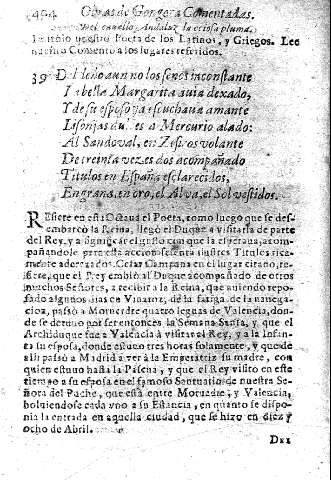 494 Obras de Gongora Comentadas.
del cauello Andaluz la ociosa pluma.
nuestro Poeta de los Latinos, y Griegos. Lee
nuestro Comento a los lugares referidos.
39 Del leño aun no los senos inconstante
La bella Margarita auia dexado,
Y de su esposo ya escuchaua amante
Lisonjas dulces a Mercurio alado:
Al Sandoval, en Zefiros volante
De treinta vezes dos acompañado
Titulos en España esclarecidos,
En grana, en oro, el Alva, el Sol vestidos.
REfiere en esta Octaua el Poeta, como luego que se des-
embarcò la Reina, llegò el Duque a visitarla de parte
del Rey, y a significar el gusto con que la esperaua, acom-
pañandole para esta accion sesenta ilustres Titulos rica-
mente aderezados. Celar Campana en el lugar citano, re-
fiere, que el Rey embiò al Duque acompañado de otros
muchos Señores, a recibir a la Reina, que auiendo repo-
sado algunos dias en Vinaroz, de la fatiga de la nauega-
cion, passò a Moruedre quatro leguas de Valencia, don-
de se detuuo por ser entonces la Semana Santa, y que el
Archiduque fue a Valencia à visitar el Rey, y a la Infan-
ta su esposa, donde estuuo tres horas solamente, y que de
alli passò a Madrid a ver à la Emperatriz su madre, con
quien estuuo hasta la Pascua, y que el Rey visito en este
tiempo a su esposa en el famoso Santuario de nuestra Se-
ñora del Puche, que està entre Moruedre, y Valencia,
boluiendose cada vno a su Estancia, en quanto se dispo-
nia la entrada en aquella ciudad, que se hizo en diez y
ocho de Abril.